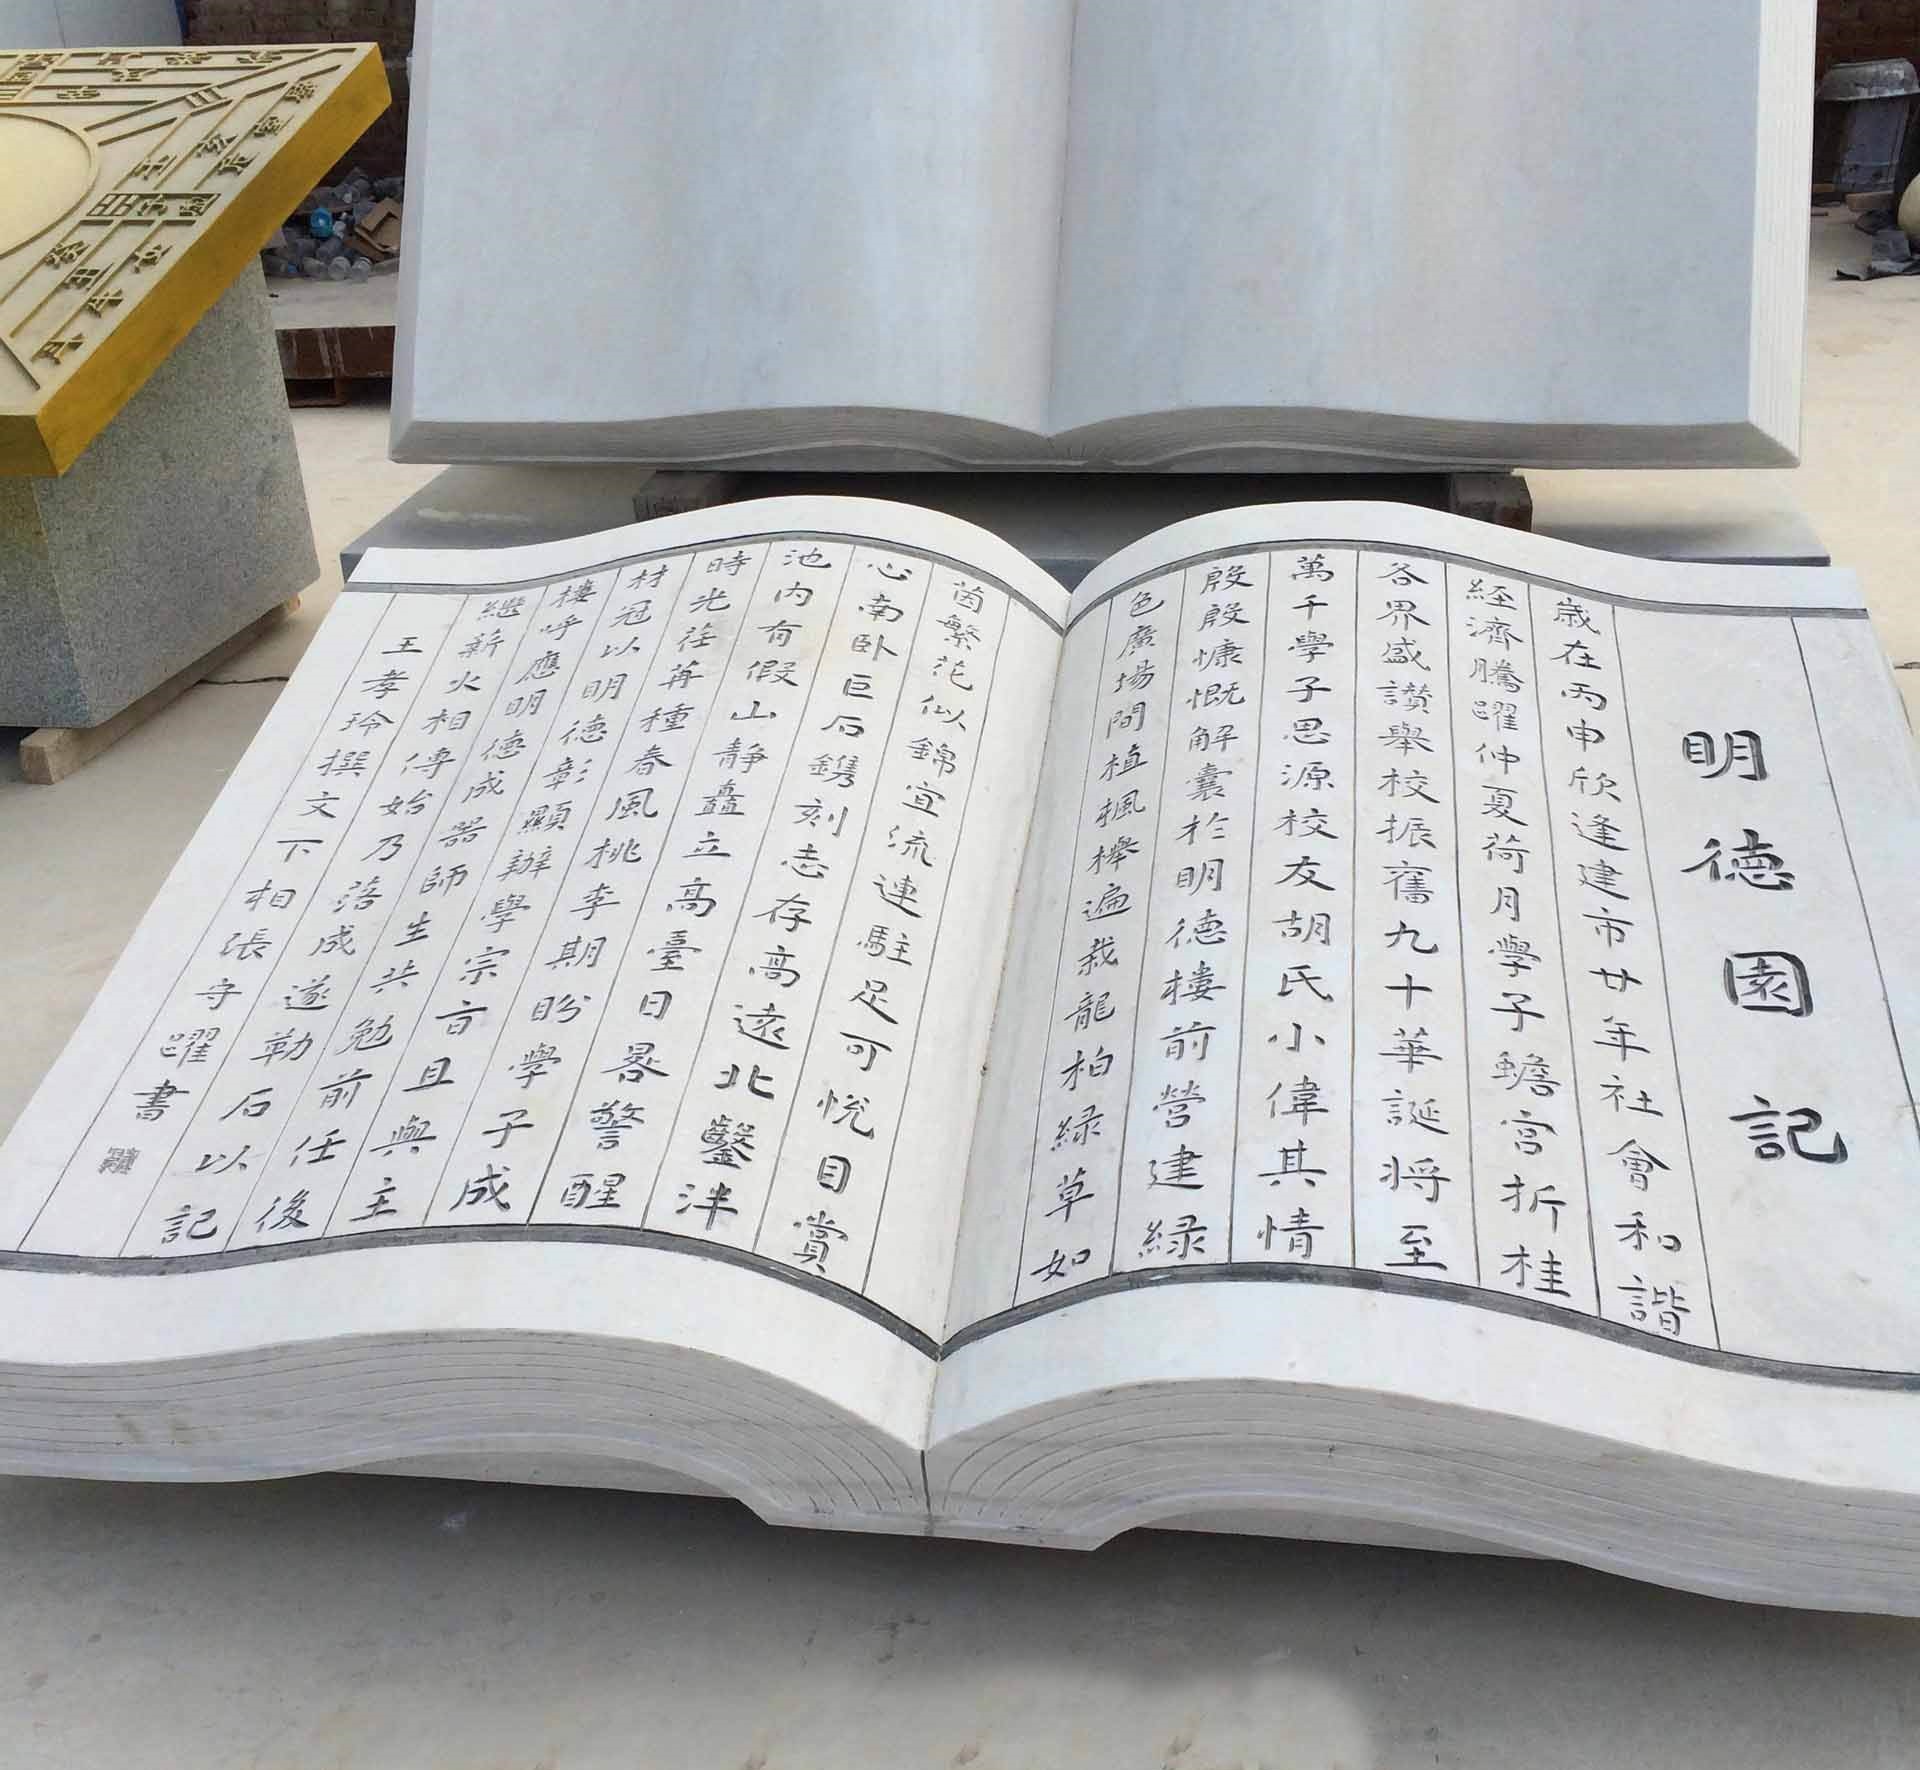 明德園記
歲在丙申欣逢建市廿年社會和諧
經濟騰躍仲夏荷月學子蟾宮折桂
各界盛讚舉校振奮九十華誕將至
萬千學子思源校友胡氏小偉其情
殷殷慷慨解囊於明德樓前營建綠
色廣場間植楓櫸遍栽龍柏綠草如
茵繁花似錦宜流連駐足可悅目賞
心南卧巨石鐫刻志存高遠北鑿泮
池內有假山靜矗立高臺日晷警醒
時光荏苒種春風桃李期盼學子成
材冠以明德彰顯辦學宗旨且與主
樓呼應明德成器師生共勉前任後
繼薪火相傳始乃落成遂勒石以記
王孝玲撰文下相張守躍書